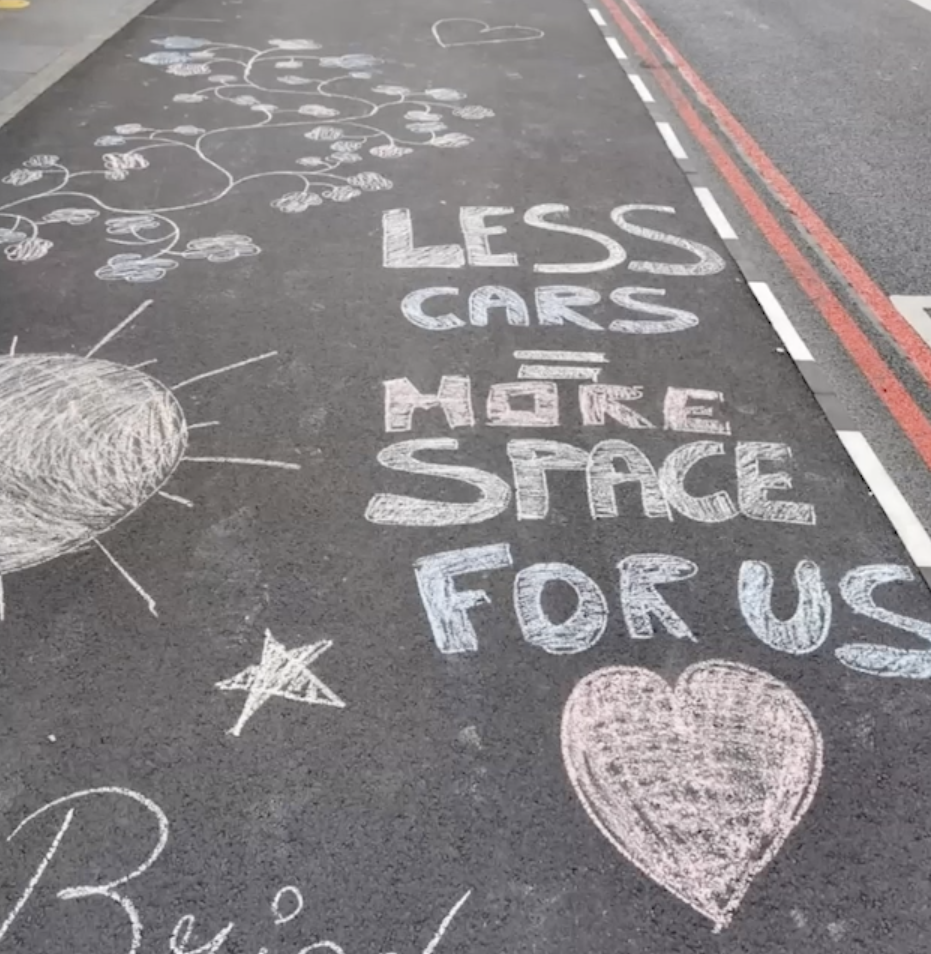 LESS
CARS
=
MORE
SPACE
FOR US